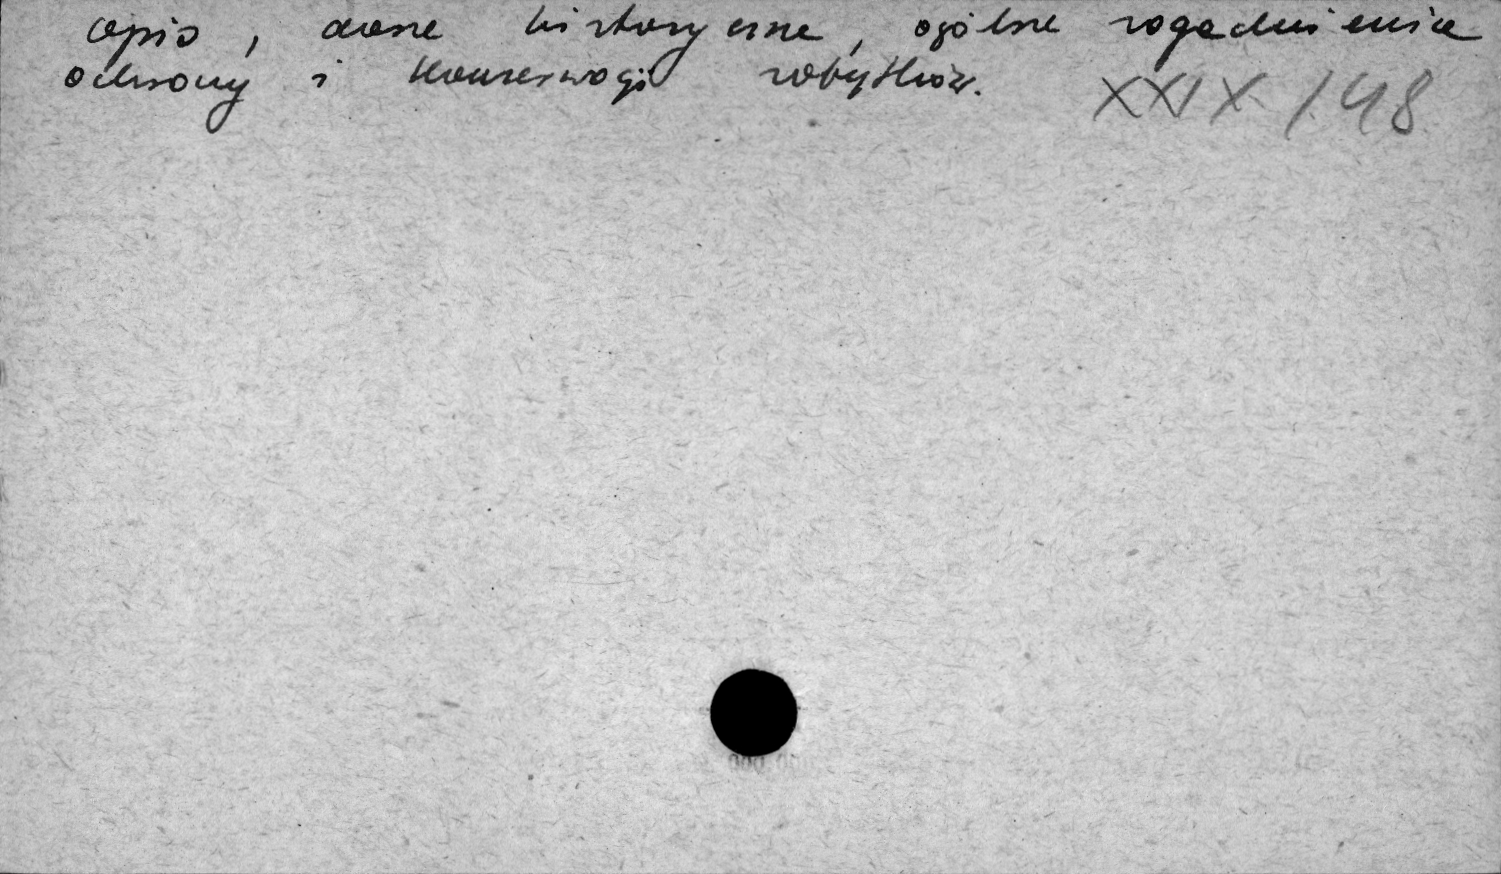 opis, dane historyczne, ogólne zagadnienia
ochrony i konserwacji zabytków.
XXIX / 48